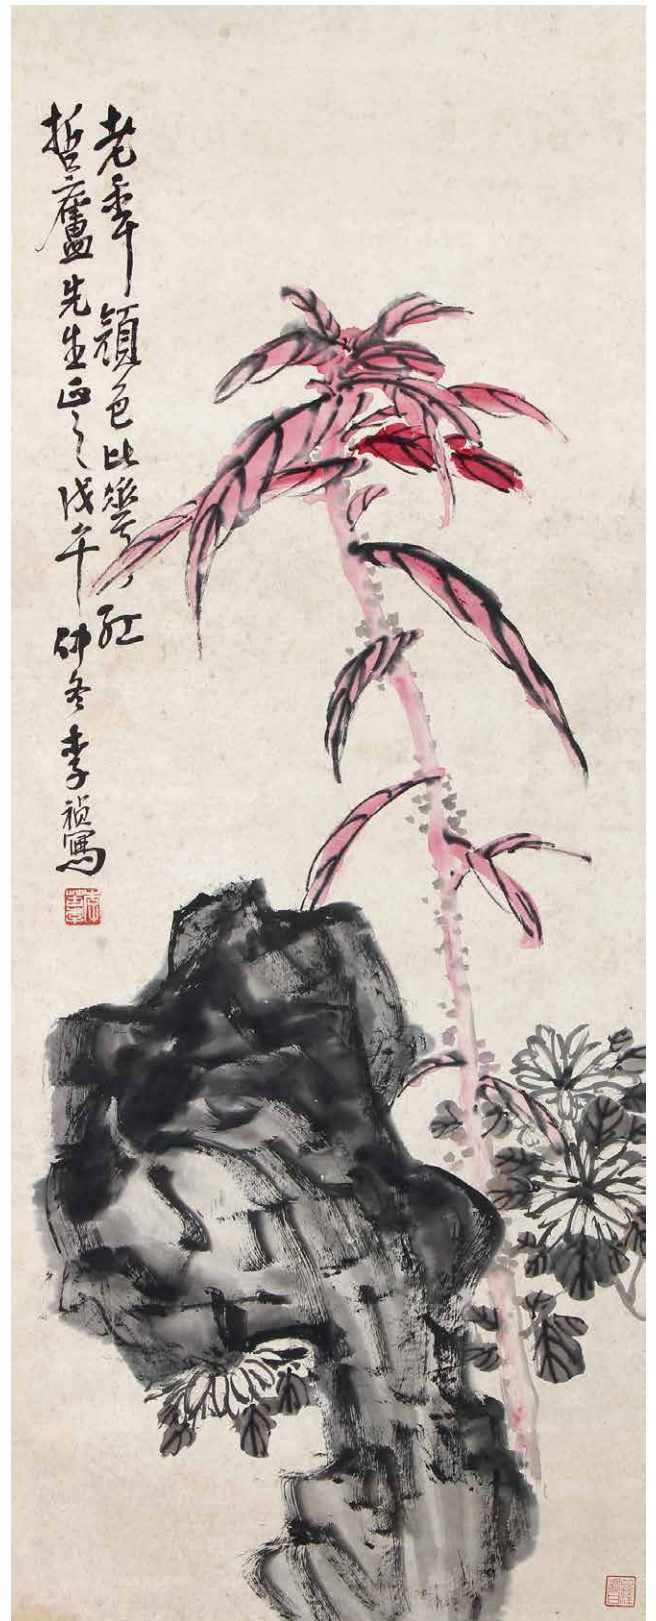 老年顏色比花紅
哲廬先生正之戊午仲冬李禎寫